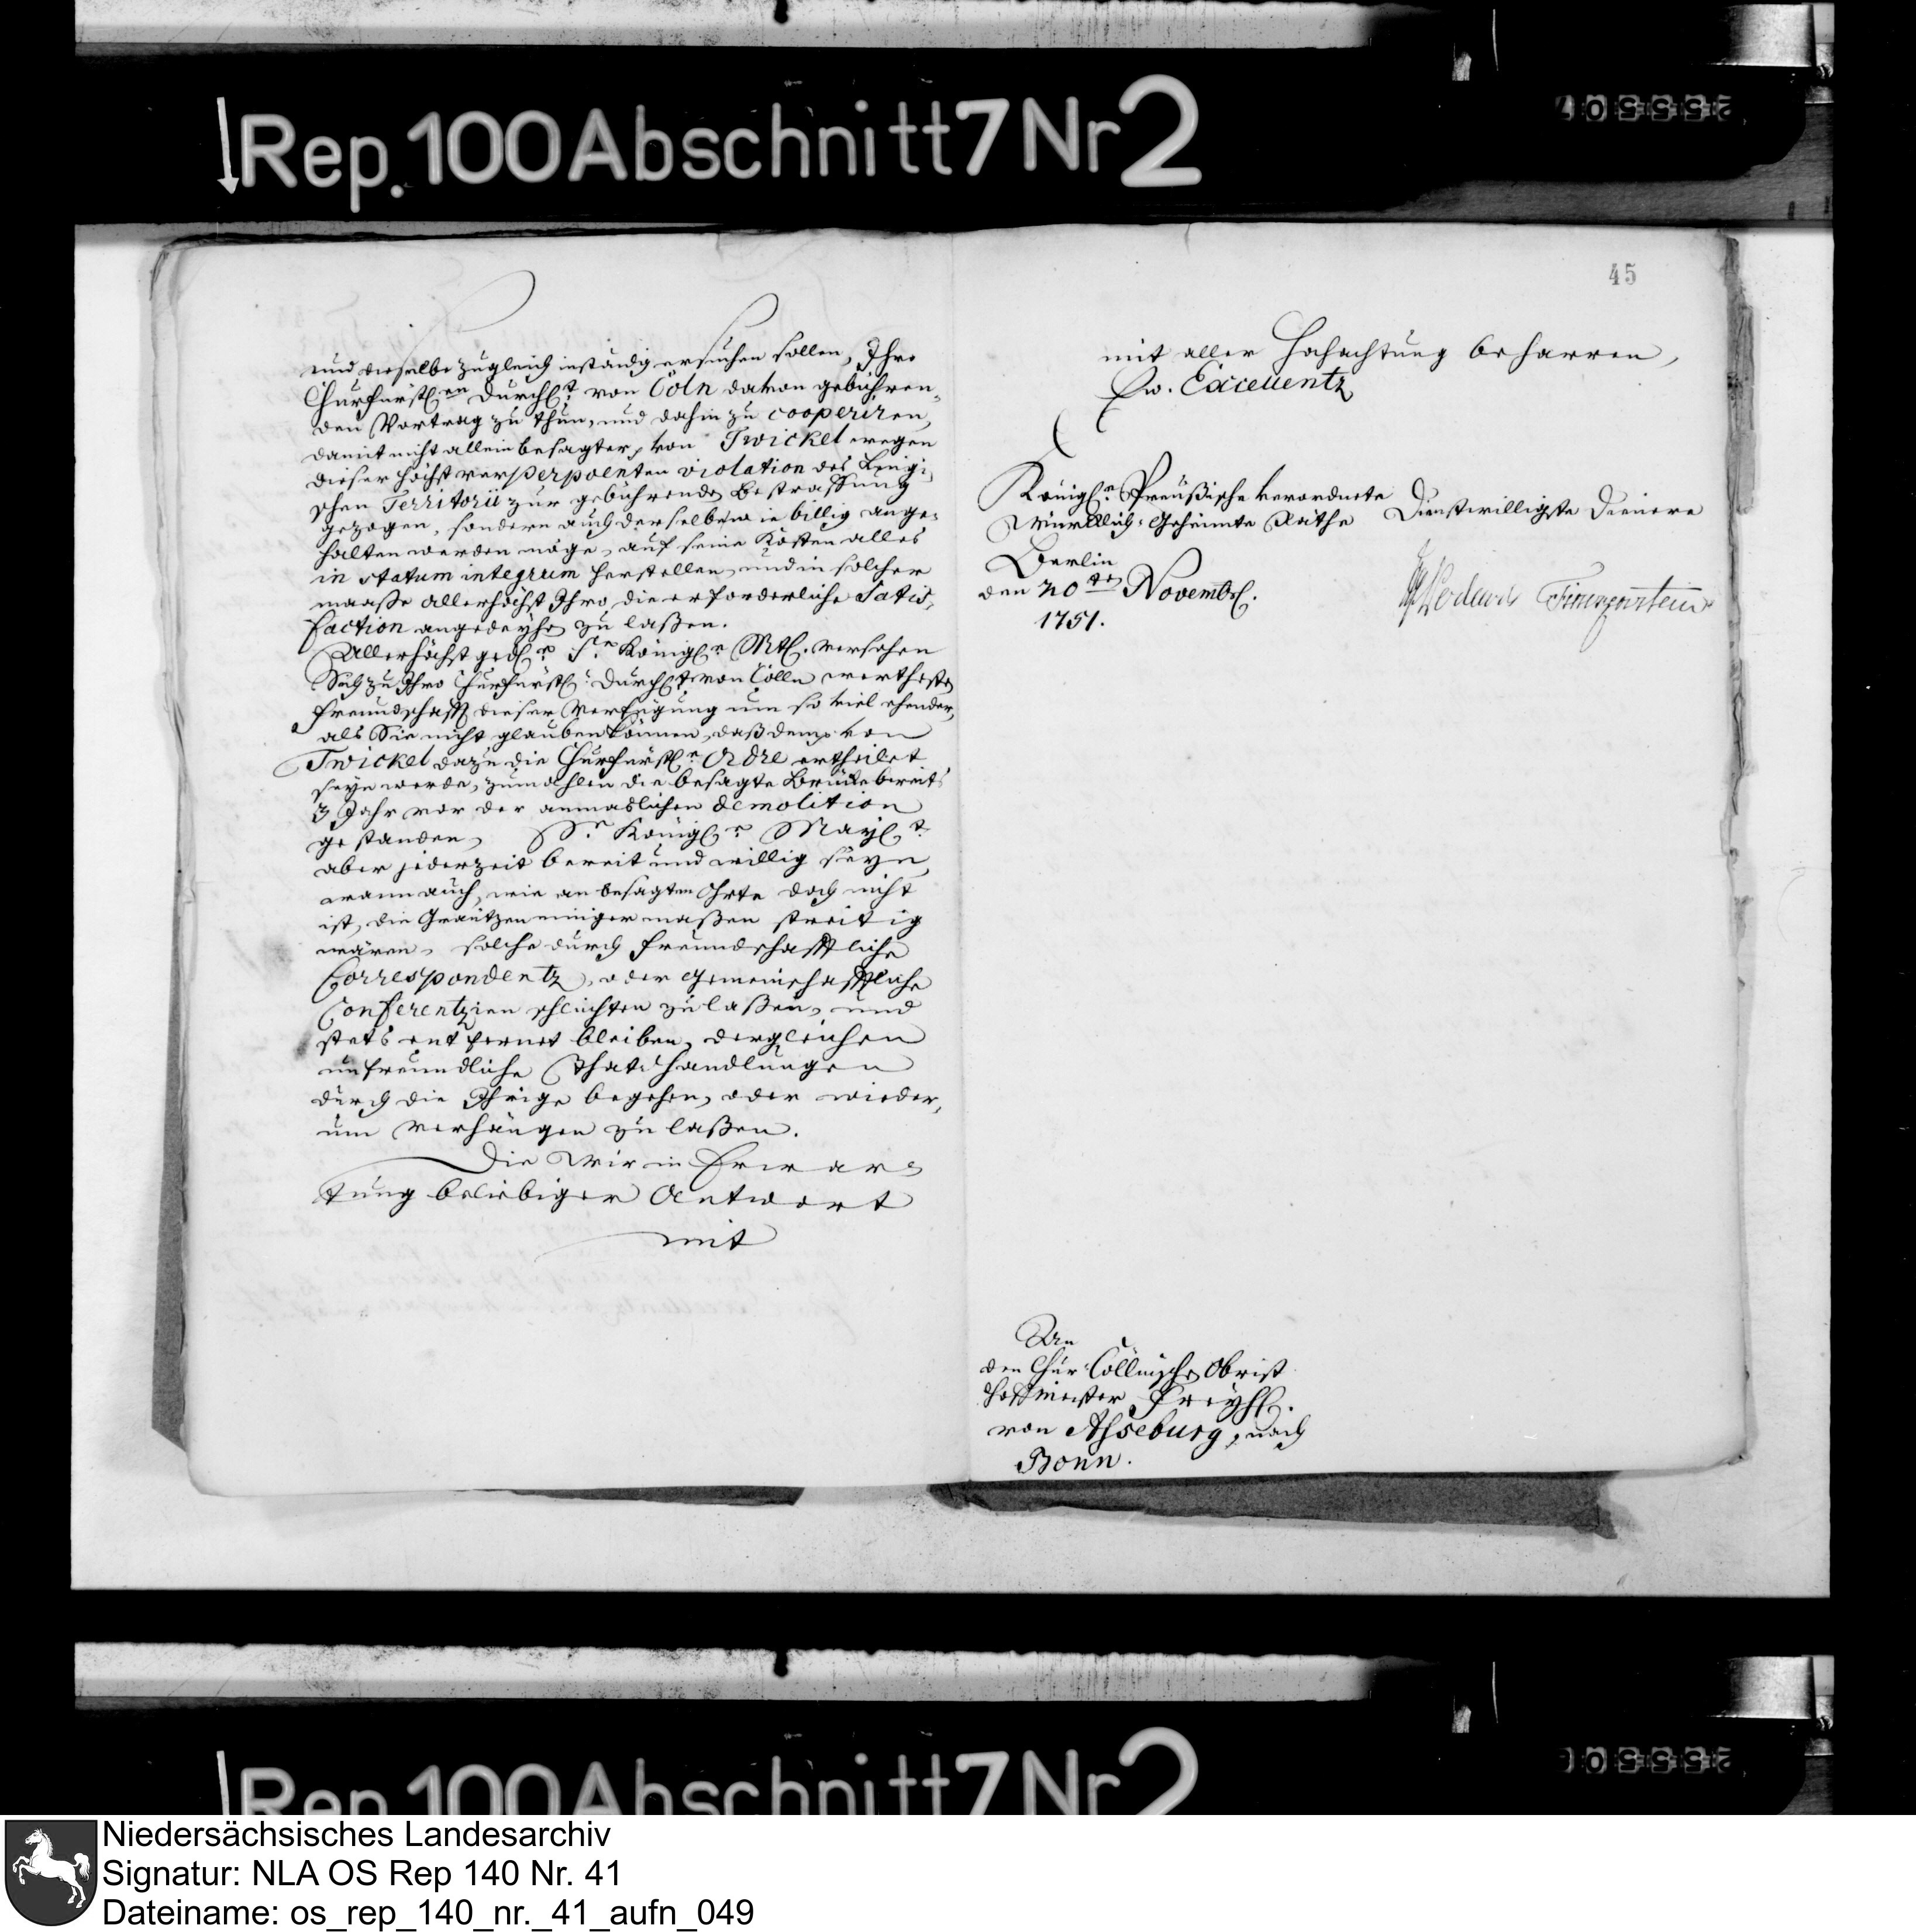 Rep. 100 Abschnitt 7 Nr 2
45
und dieselbe zugleich inständig ersuchen sollen, Ihro
Churfürstl.en Durchl.t von Cöln davon gebühren-
den Vortrag zu thun, und dahin zu cooperiren,
damit nicht allein besagter von Twickel wegen
dieser höchst verperpoenten violation des
schen Territorii zur gebührende Bestraffung
gezogen, sondern auch derselbe wie billig ange-
halten werden möge, auf seine Kosten alles
in statum integrum herstellen, und in solcher
maaße allerhöchst Ihro die erforderliche Satis-
faction angedeyhe zu laßen.
Allerhöchst ged.r Sr. Königl.r Mtl. versehen
Sich zu Ihro Churfürstl. Durchl.t von Cölln wertheste
Freundschafft dieser Verfügung um so viel ehender,
als Sie nicht glauben können, daß dem von
Twickel dazu die Churfürstl.e Ordre ertheilet
seyn werde, zumahlen die besagte Brücke bereits
3 Jahr vor der anmaslichen demolition
gestanden, Sr. Königl.r Mayl.t
aber jederzeit bereit und willig seyn,
wann auch, wie an besagten Ohrte doch nicht
ist, die Gräntzen einigermaßen streitig
wären, solche durch freundschafftliche
Correspondentz, oder gemeinschafftliche
Conferentzien schlichten zu laßen, und
stets entfernet bleiben, dergleichen
unfreundliche Thathandlungen
durch die Ihrige begehen, oder wieder-
um verhängen zu laßen.
Die Wir in Erwar-
tung beliebiger Antwort
mit
mit aller Hochachtung beharren,
Ew. Excellentz
Königl.e Preußische verordnete
Würcklich Geheimte Räthe
Dienstwilligste Dienere
Berlin
den 20ten Novembr.
1751.
Podewils Finckenstein
An
den Chur Cöllnische Obrist
Hoffmeister Freyh.
von Asseburg, nach
Bonn.
Rep. 100 Abschnitt 7 Nr 2
Niedersächsisches Landesarchiv
Signatur: NLA OS Rep 140 Nr. 41
Dateiname: os_rep_140_nr._41_aufn_049